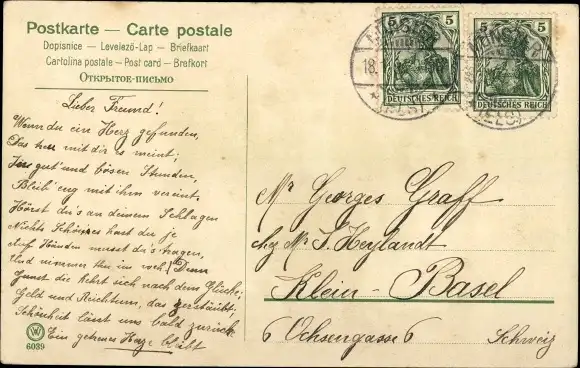 Postkarte — Carte postale
Dopisnice — Levelező-Lap — Briefkaart
Cartolina postale — Post card — Brefkort
Открытое-письмо
5 5
5 5
MÜNSTER
18.
(ELS)
MÜNSTER
(ELS)
DEUTSCHES REICH
DEUTSCHES REICH
Lieber Freund!
Wenn du ein Herz gefunden,
Das treu mit dir es meint;
In gut und bösen Stunden,
Bleib' eng mit ihm vereint.
Hörst du's an deinem Schlagen
Nichts Schönres hast du je
Auf Händen musst du's tragen,
Und nimmer thu ihm weh! Denn
Gunst die kehrt sich nach dem Glücke;
Geld und Reichtum, das zerstäubt;
Schönheit lässt uns bald zurück
Ein getreues Herze bleibt
Mr Georges Graff
chez Mr J. Heylandt
Klein-Basel
6 Ochsengasse 6 Schweiz
W
6039